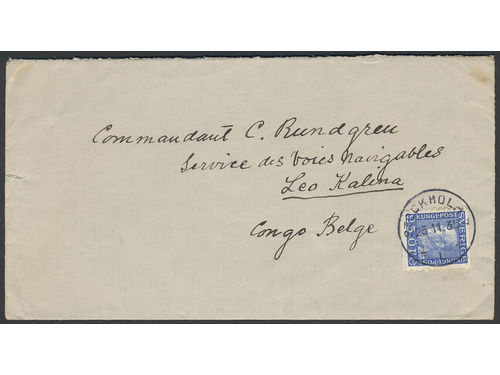 Commandant C. Rundgren
Service des Voies navigables
Leo Kalina
Congo Belge
STOCKHOLM
KUNGL·POST
SVERIGE